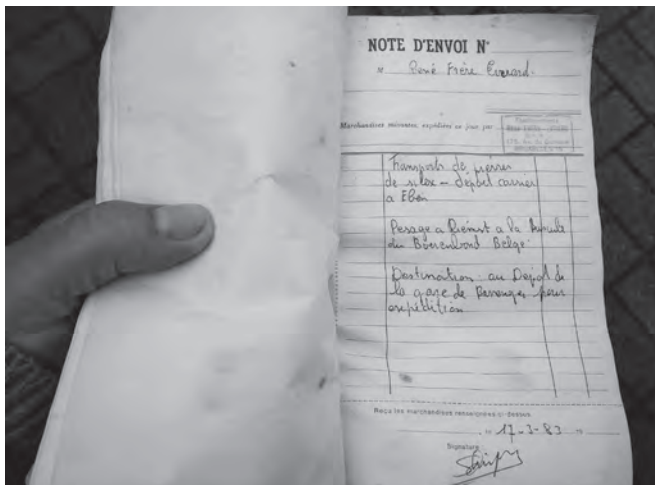 NOTE D'ENVOI N°
M René Frère Everard.
Marchandises suivantes, expédiées ce jour par
Transports de pierres
de silex – dépôt carrier
a Eben
Pesage a Riemst a la Bascule
du Boerenbond Belge.
Destination : au Depot de
la gare de pour
expédition
Reçu les marchandises renseignées ci-dessus
17-3-83
Signature